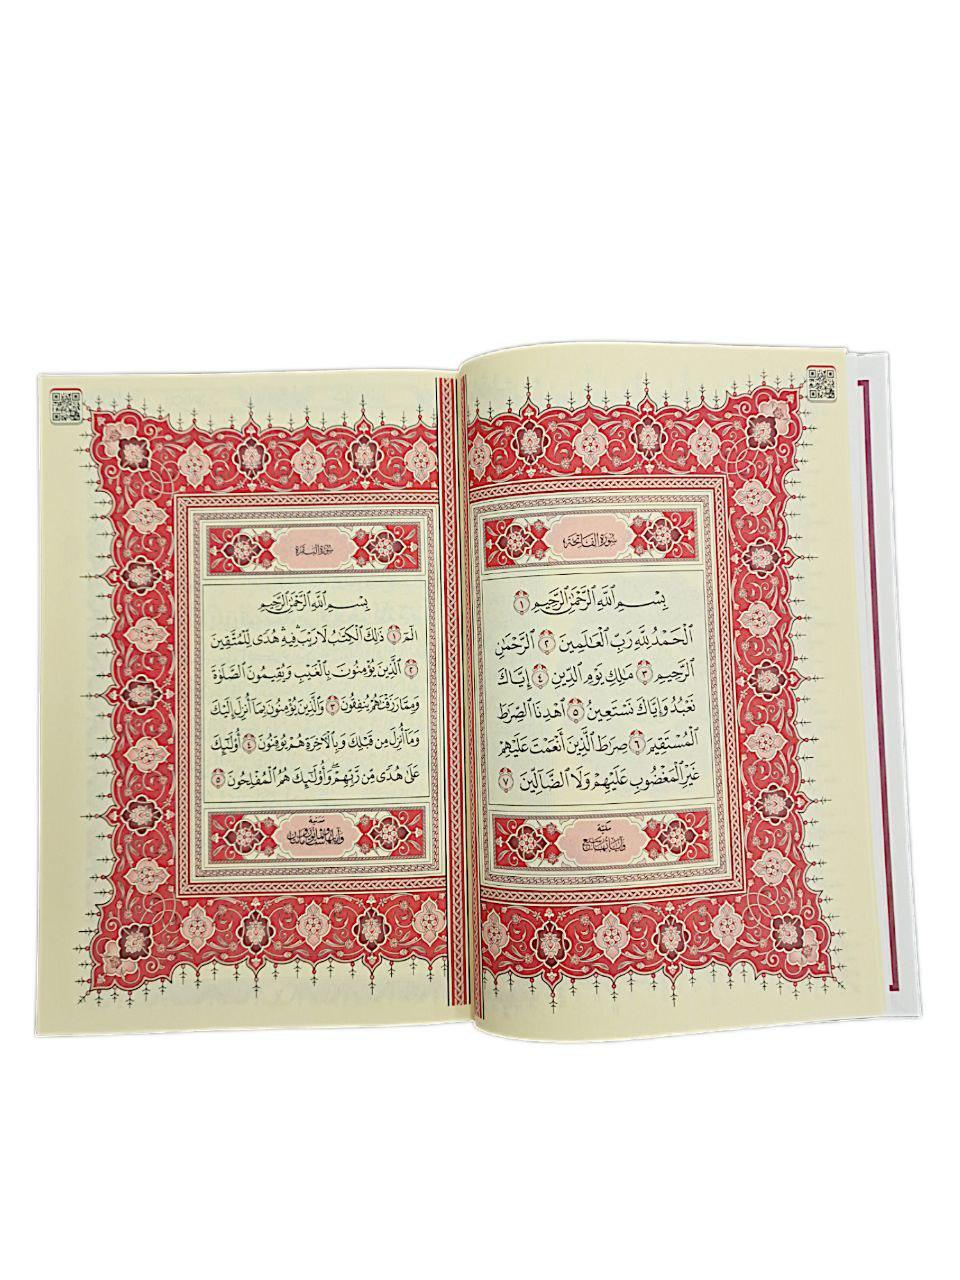 سُورَةُ الفَاتِحَة
بِسْمِ ٱللَّهِ ٱلرَّحْمَٰنِ ٱلرَّحِيمِ ١
ٱلْحَمْدُ لِلَّهِ رَبِّ ٱلْعَٰلَمِينَ ٢ ٱلرَّحْمَٰنِ
ٱلرَّحِيمِ ٣ مَٰلِكِ يَوْمِ ٱلدِّينِ ٤ إِيَّاكَ
نَعْبُدُ وَإِيَّاكَ نَسْتَعِينُ ٥ ٱهْدِنَا ٱلصِّرَٰطَ
ٱلْمُسْتَقِيمَ ٦ صِرَٰطَ ٱلَّذِينَ أَنْعَمْتَ عَلَيْهِمْ
غَيْرِ ٱلْمَغْضُوبِ عَلَيْهِمْ وَلَا ٱلضَّآلِّينَ ٧
سُورَةُ البَقَرَة
بِسْمِ ٱللَّهِ ٱلرَّحْمَٰنِ ٱلرَّحِيمِ
الٓمٓ ١ ذَٰلِكَ ٱلْكِتَٰبُ لَا رَيْبَ ۛ فِيهِ ۛ هُدًى لِّلْمُتَّقِينَ
٢ ٱلَّذِينَ يُؤْمِنُونَ بِٱلْغَيْبِ وَيُقِيمُونَ ٱلصَّلَوٰةَ
وَمِمَّا رَزَقْنَٰهُمْ يُنفِقُونَ ٣ وَٱلَّذِينَ يُؤْمِنُونَ بِمَآ أُنزِلَ إِلَيْكَ
وَمَآ أُنزِلَ مِن قَبْلِكَ وَبِٱلْءَاخِرَةِ هُمْ يُوقِنُونَ ٤ أُو۟لَٰٓئِكَ
عَلَىٰ هُدًى مِّن رَّبِّهِمْ ۖ وَأُو۟لَٰٓئِكَ هُمُ ٱلْمُفْلِحُونَ ٥